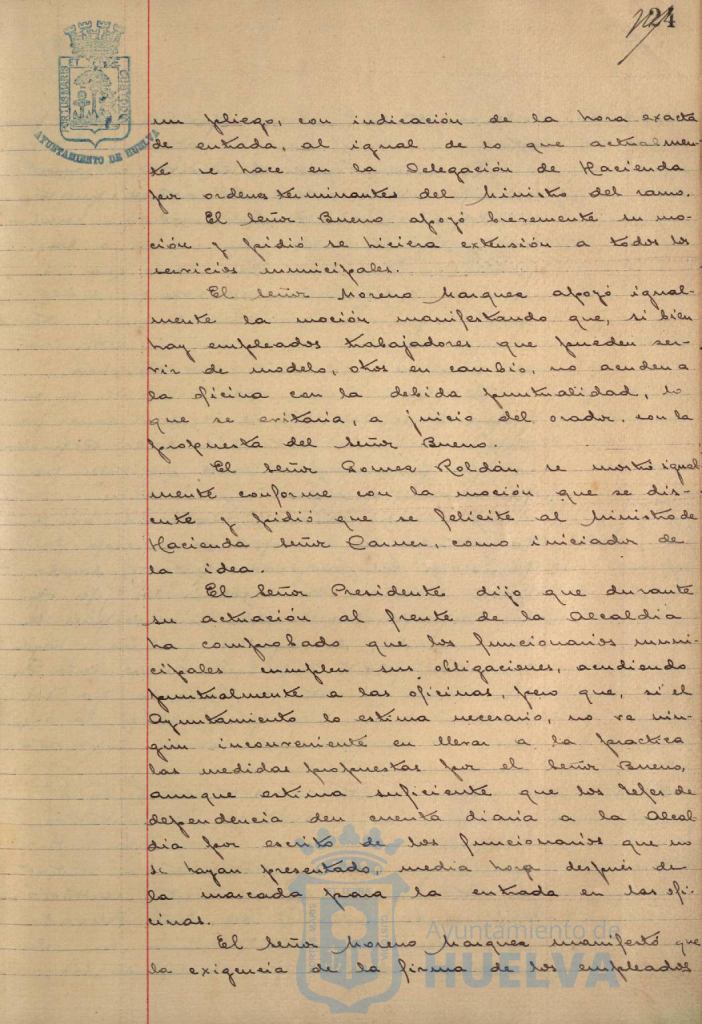 24
PORTUS MARIS ET TERRAE CUSTODIA
AYUNTAMIENTO DE HUELVA
un pliego, con indicación de la hora exacta
de entrada, al igual de lo que actualmen-
te se hace en la Delegación de Hacienda
por ordenes terminantes del Ministro del ramo.
El Señor Bueno apoyó brevemente su mo-
ción y pidió se hiciera extensión a todos los
servicios municipales.
El Señor Moreno Marquez apoyó igual-
mente la moción manifestando que, si bien
hay empleados trabajadores que pueden ser-
vir de modelo, otros en cambio, no acuden a
la oficina con la debida puntualidad, lo
que se evitaria, a juicio del orador, con la
propuesta del Señor Bueno.
El Señor Gomez Roldán se mostró igual
mente conforme con la moción que se dis-
cute y pidió que se felicite al Ministro de
Hacienda Señor Carner, como iniciador de
la idea.
El Señor Presidente dijo que durante
su actuación al frente de la Alcaldia
ha comprobado que los funcionarios muni-
cipales cumplen sus obligaciones, acudiendo
puntualmente a las oficinas, pero que, si el
Ayuntamiento lo estima necesario, no ve nin-
gún inconveniente en llevar a la practica
las medidas propuestas por el Señor Bueno,
aunque estima suficiente que los Jefes de
dependencia den cuenta diaria a la Alcal-
dia por escrito de los funcionarios que no
se hayan presentado, media hora después de
la marcada para la entrada en las ofi-
cinas.
El Señor Moreno Marquez manifestó que
la exigencia de la firma de los empleados
Ayuntamiento de
HUELVA